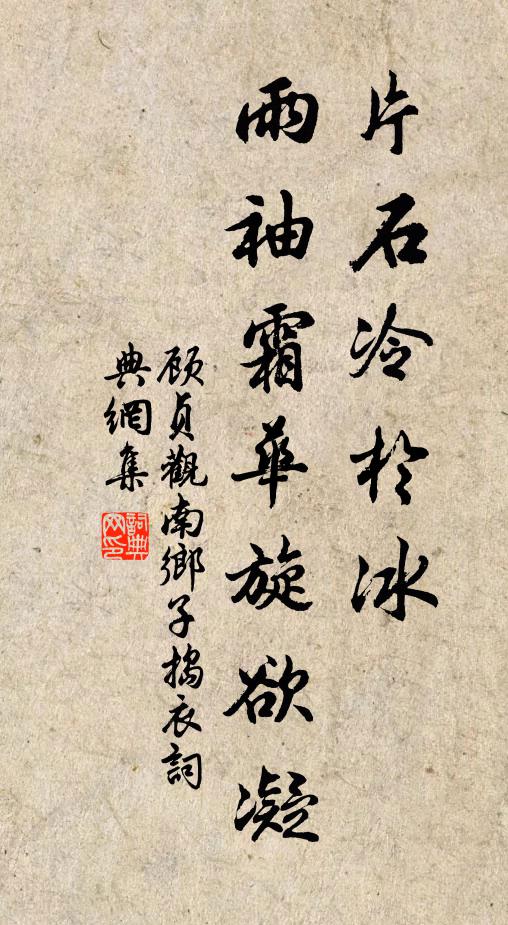 片石冷於冰
雨袖霜華旋欲凝
顾貞觀南鄉子搗衣詞
典網集
詞典網印